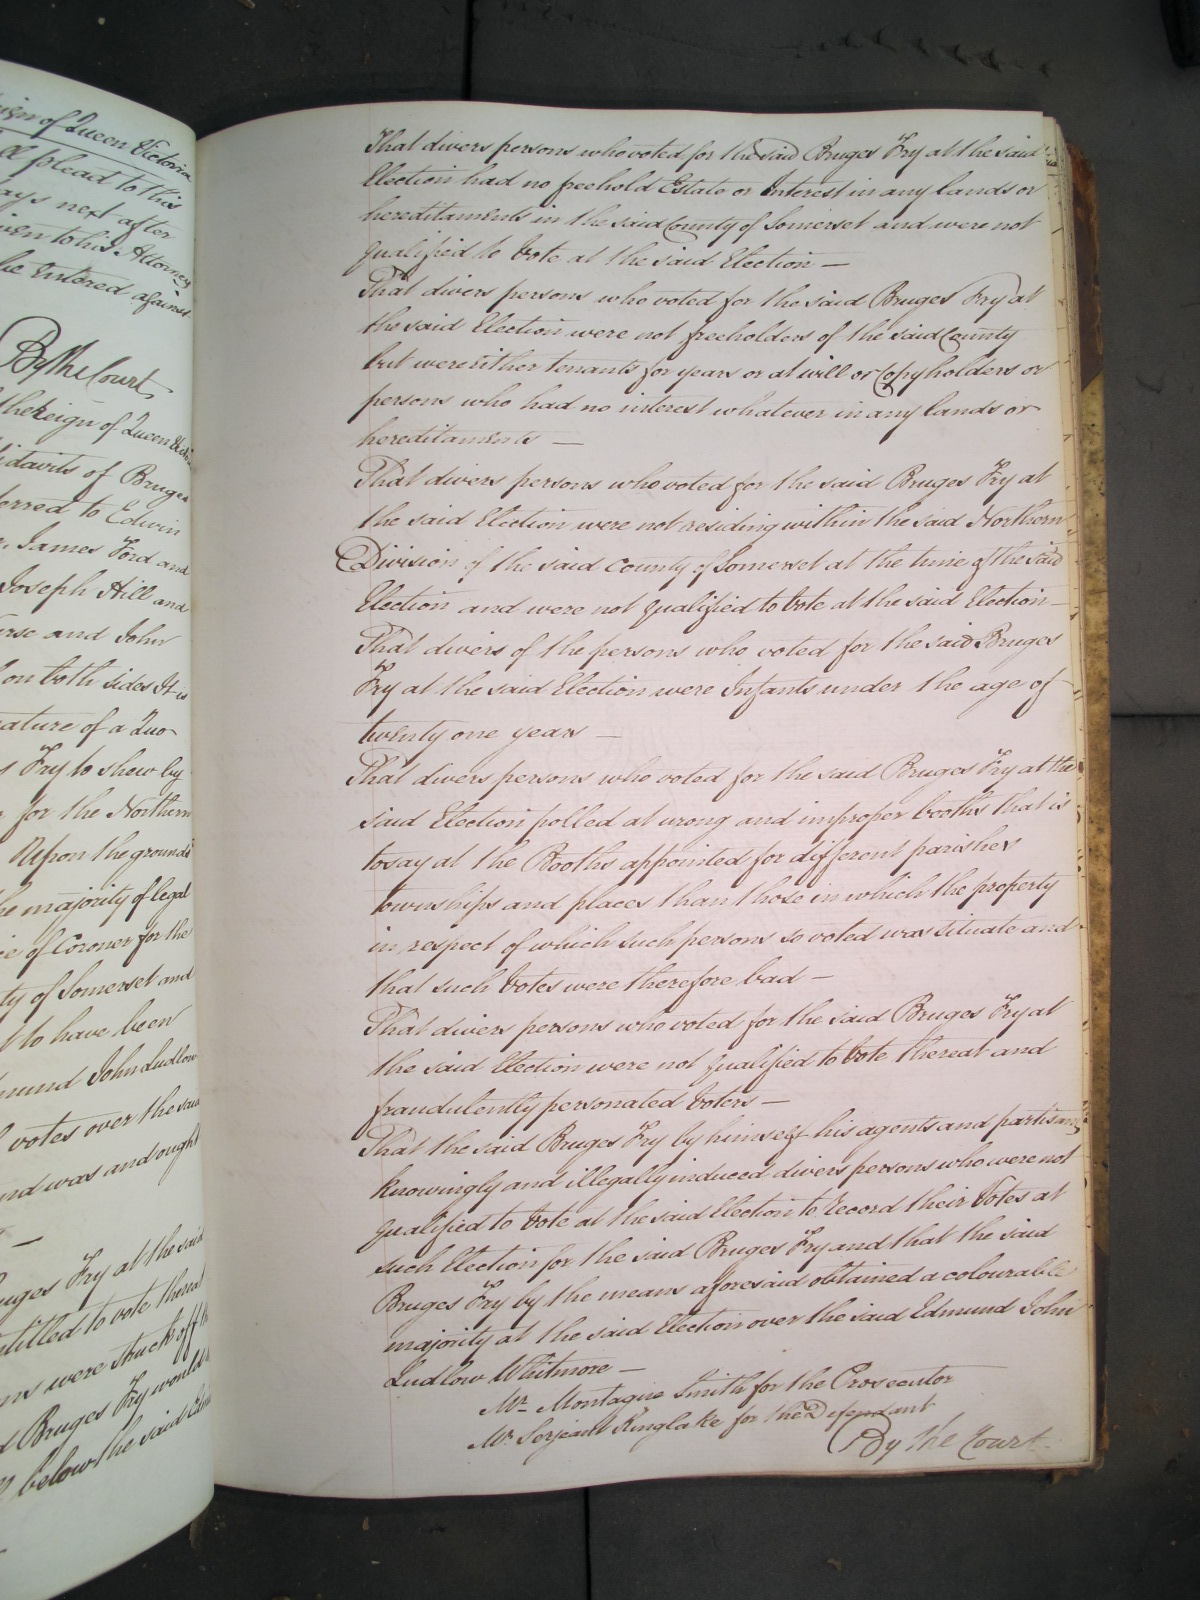 eign of Queen Victoria
plead to this
ays next after
iven to his Attorney
be Entered against
By the Court
the Reign of Queen Victoria
idavits of Bruges
erred to Edwin
James Ford and
Joseph Hill and
rse and John
on both sides It is
ature of a Quo
s Fry to shew by
for the Northern
Upon the grounds
he majority of legal
ce of Coroner for the
ty of Somerset and
t to have been
mund John Ludlow
votes over the said
nd was and ought
ruges Fry at the said
ntitled to vote thereat
ns were struck off the
d Bruges Fry would
below the said Edm
That divers persons who voted for the said Bruges Fry at the said
Election had no freehold Estate or Interest in any lands or
hereditaments in the said County of Somerset and were not
qualified to Vote at the said Election —
That divers persons who voted for the said Bruges Fry at
the said Election were not freeholders of the said County
but were either tenants for years or at will or Copyholders or
persons who had no interest whatever in any lands or
hereditaments —
That divers persons who voted for the said Bruges Fry at
the said Election were not residing within the said Northern
Division of the said County of Somerset at the time of the said
Election and were not qualified to Vote at the said Election —
That divers of the persons who voted for the said Bruges
Fry at the said Election were Infants under the age of
twenty one years —
That divers persons who voted for the said Bruges Fry at the
said Election polled at wrong and improper booths that is
to say at the Booths appointed for different parishes
townships and places than those in which the property
in respect of which such persons so voted was situate and
that such Votes were therefore bad —
That divers persons who voted for the said Bruges Fry at
the said Election were not qualified to Vote thereat and
fraudulently personated Voters —
That the said Bruges Fry by himself his agents and partisans
knowingly and illegally induced divers persons who were not
qualified to Vote at the said Election to Record their Votes at
such Election for the said Bruges Fry and that the said
Bruges Fry by the means aforesaid obtained a colourable
majority at the said Election over the said Edmund John
Ludlow Whitmore —
Mr. Montague Smith for the Prosecutor
Mr. Serjeant Kinglake for the Defendant
By the Court